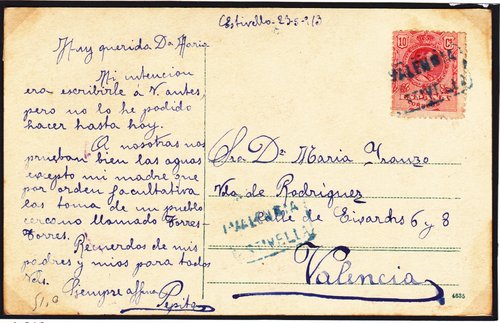 Estivella-23-5-913
Muy querida Da Maria
Mi intencion
era escribirle á V. antes,
pero no lo he podido
hacer hasta hoy.
A nosotras nos
prueban bien las aguas
excepto mi madre que
por orden facultativa
las toma de un pueblo
cercano llamado Torres-
Torres.
Recuerdos de mis
padres y mios para todos
Vds.
Siempre affma
Pepita
10 Cs
VALENCIA
ESTIVELLA
Sra Da Maria
Vda de Rodríguez
Calle de Eixarchs 6 y 8
Valencia
VALENCIA
ESTIVELLA
4635